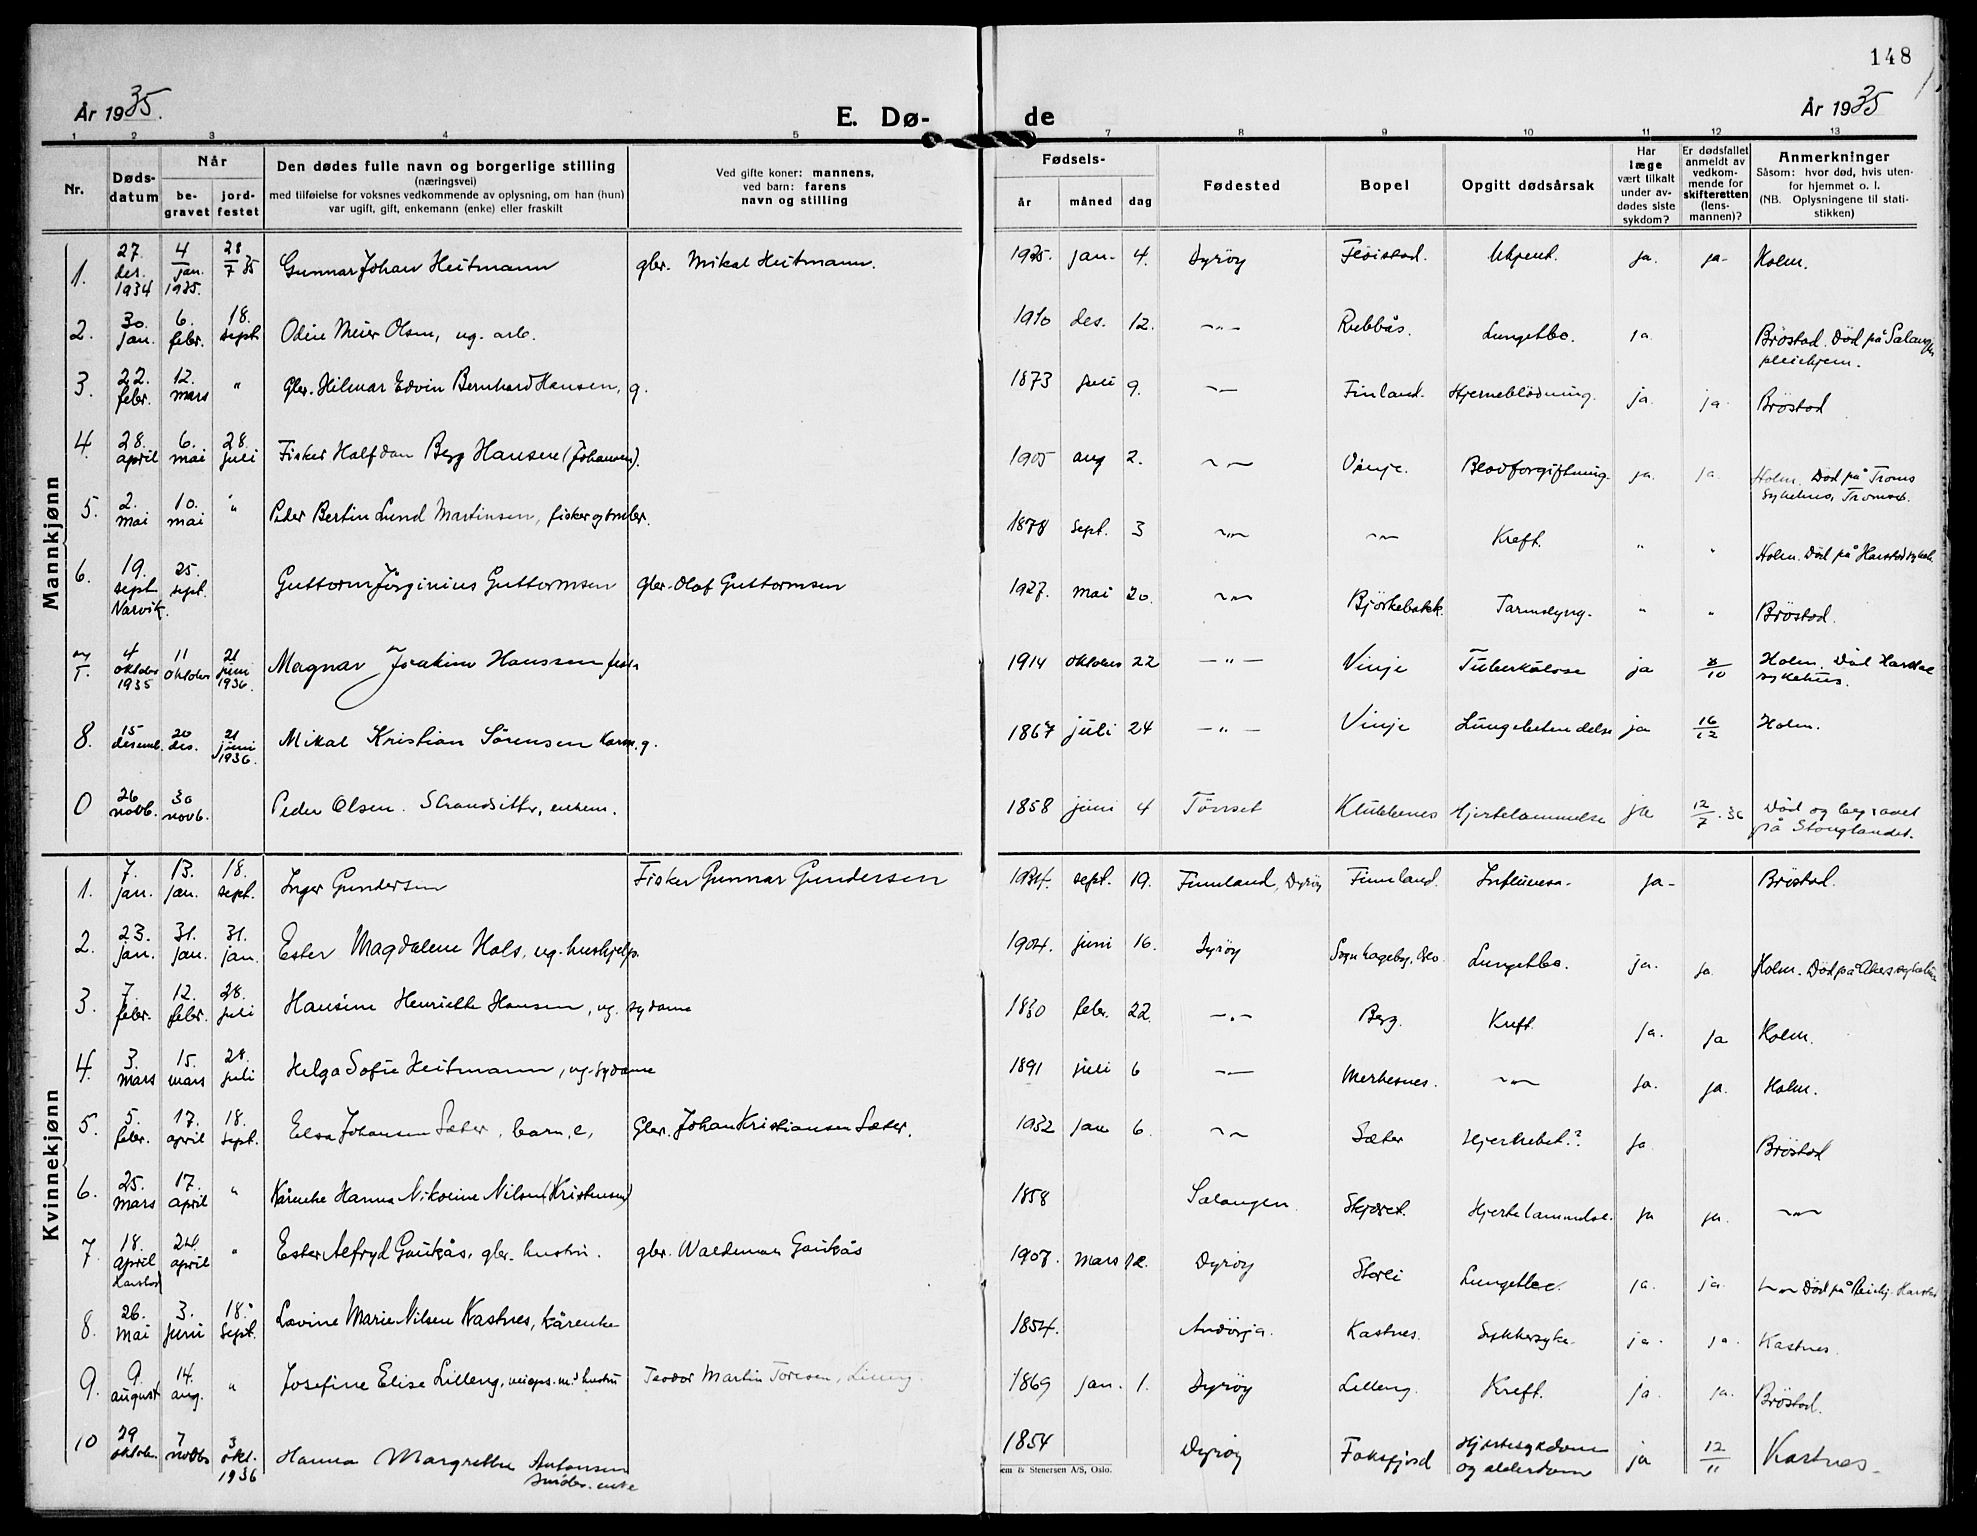 148
År 1935.
E. Dø-
de
År 1935
1 2 3 4 5 7 8 9 10 11 12 13
Nr.
Døds-
datum
Når
be-
gravet
jord-
festet
Den dødes fulle navn og borgerlige stilling
(næringsvei)
med tilføielse for voksnes vedkommende av oplysning, om han (hun)
var ugift, gift, enkemann (enke) eller fraskilt
Ved gifte koner: mannens,
ved barn: farens
navn og stilling
Fødsels-
år
måned
dag
Fødested
Bopel
Opgitt dødsårsak
Har
læge
vært tilkalt
under av-
dødes siste
sykdom?
Er dødsfallet
anmeldt av
vedkom-
mende for
skifteretten
(lens-
mannen)?
Anmerkninger
Såsom: hvor død, hvis uten-
for hjemmet o. l.
(NB. Oplysningene til stati-
stikken)
Mannkjønn
1. 27. des. 1934 4 jan. 1935. 28/7 35 Gunnar Johan Heitmann gbr. Mikal Heitmann. 1935. jan. 4. Dyrøy Ukjent. ja. ja. Holm.
2. 30. jan. 6. febr. 18. sept Odin Meier Olsen, ug. arb. 1910 des. 12. -"- Lungetbc. ja Brøstad. Død på Salangen
pleiehjem.
3. 22. febr. 12. mars " Gbr. Hilmar Edvin Bernhard Hansen, g. 1873 juli 9. -"- Finland. Hjerneblødning. ja. ja. Brøstad
4. 28. april 6. mai 28. juli Fisker Halfdan Berg Hansen (Johansen). 1905 aug 2. -"- Vinje. Blodforgiftning. ja. ja Holm. Død på Troms
sykehus, Tromsø.
5. 2. mai 10. mai " Peder Bertin Lund Martinsen, fisker og småbr. 1878 sept. 3 -"- -"- Kreft. " " Holm. Død på Harstad sykeh.
6. 19. sept Narvik. 25. sept. Guttorm Jørginius Guttormsen gbr. Olaf Guttormsen 1927. mai 20. -"- Bjørkebakk. Tarmslyng. " " Brøstad.
7. 4 oktober 1935 11 oktober 21 juni 1936. Magnar Joakim Hanssen fisker 1914 oktober 22 -"- Vinje Tuberkulose ja 8/10 Holm. Død Harstad
sykehus.
8. 15 desemb. 20 des. 21 juni 1936. Mikal Kristian Sørensen kårm. g. 1867 juli 24 -"- Vinje Lungebetendelse ja 16/12 Holm.
0 26 novb. 30 novb. Peder Olsen. Strandsitter, enkem. 1858 juni 4 Tömset Klubbenes Hjertelammelse ja 12/7. 36 Død og begravet
på Stonglandet.
Kvinnekjønn
1. 7. jan. 13. jan. 18. sept. Inger Gundersen Fisker Gunnar Gundersen 1934. sept. 19. Finnland, Dyrøy Finnland. Influensa. ja- Brøstad.
2. 23. jan. 31. jan. 31. jan. Ester Magdalene Hals, ug. hushjelp. 1904. juni 16. Dyrøy Sogn hageby, Oslo. Lungetbc. ja. ja Holm. Død på Aker sykehus
3. 7. febr. 12. febr. 28. juli Hansine Henriette Hansen, ug. sydame 1830 febr. 22. -"- Berg. Kreft. ja. ja Holm.
4. 3. mars 15. mars 28. juli Helga Sofie Heitmann, ug. sydame 1891 juli 6 -"- Merkesnes. -"- ja. ja. Holm.
5. 5. febr. 17. april 18. sept. Elsa Johansen Sæter, barn, e, Gbr. Johan Kristiansen Sæter. 1932 jan 6. -"- Sæter Hjertebet.? ja Brøstad
6. 25. mars 17. april " Kårenke Hanna Nikoline Nilsen (Kristensen) 1858 Salangen Skjæret. Hjertelammelse. ja ja. -"-
7. 18. april Harstad 24. april " Ester Alfryd Gaukås, gbr. hustru. gbr. Waldemar Gaukås 1907. mars 12. Dyrøy Storli Lungetbc. ja. ja. -"- Død på Pleiehj. Harstad
8. 26. mai 3. juni 18. sept. Lovine Marie Nilsen Kastnes, kårenke 1854. Andørja. Kastnes. Sukkersyke. ja. ja. Kastnes.
9. 9. august 14. aug. " Josefine Elise Lilleng, hustru Teodor Martin Toresen, 1869 jan. 1. Dyrøy Lilleng. Kreft. ja. ja. Brøstad.
10 29 oktober 7 novbr 3 okt. 1936 Hanna Margrethe Antonsen
småbr. enke 1854 Dyrøy Faksfjord Hjertesykdom
og alderdom ja 12/11 Kastnes.
em & Stenersen A/S, Oslo.